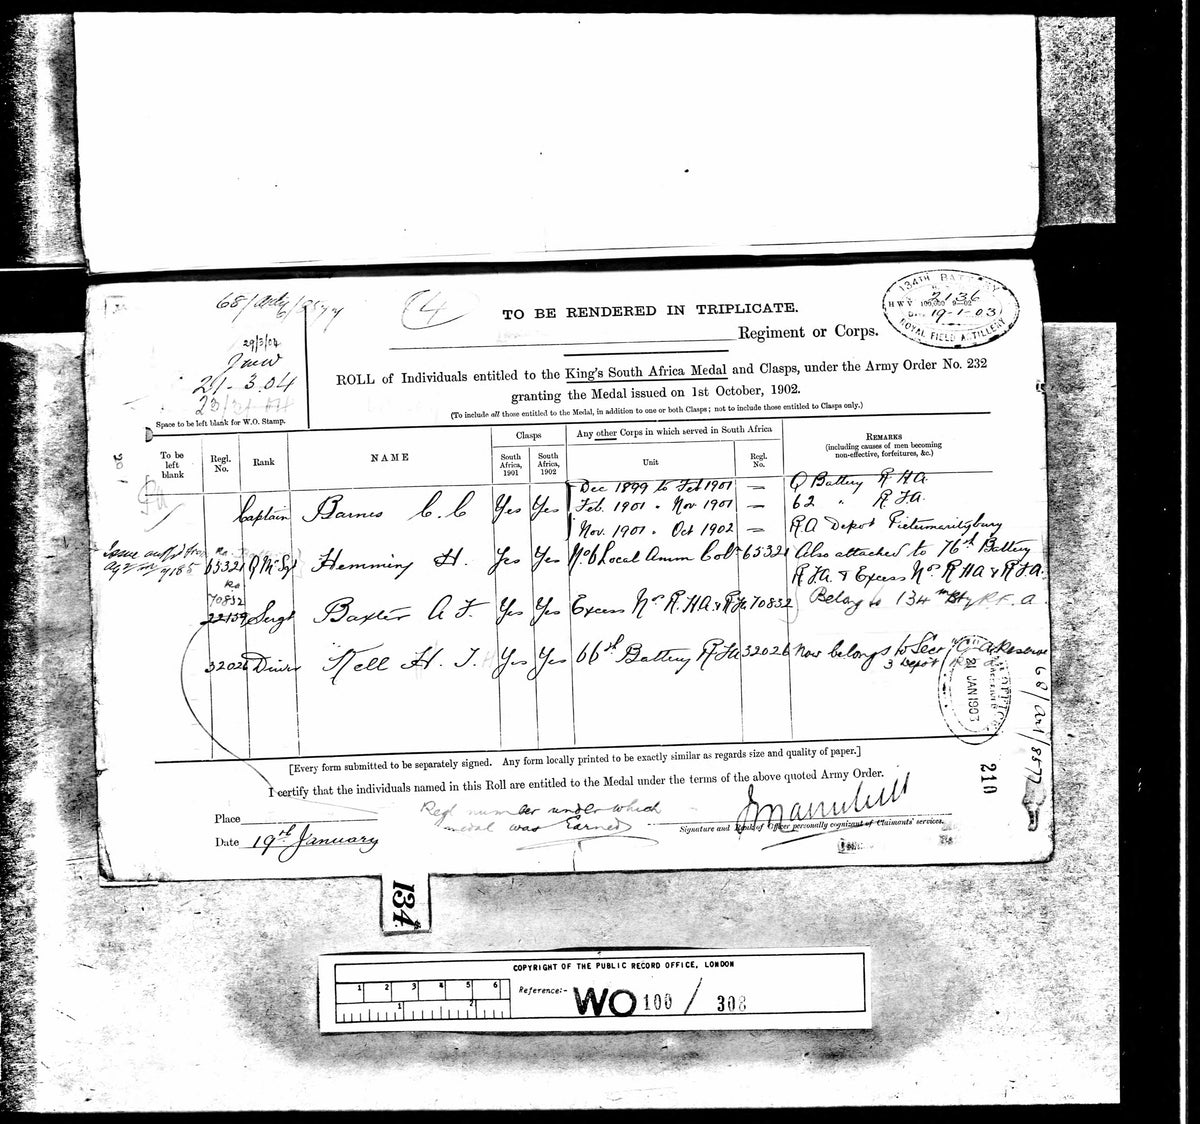 68/Arty/8577
(4)
TO BE RENDERED IN TRIPLICATE.
134TH BATTERY
H W V 2136
19-1-03
ROYAL FIELD ARTILLERY
Regiment or Corps.
29/3/04
21-3.04
Space to be left blank for W.O. Stamp.
ROLL of Individuals entitled to the King's South Africa Medal and Clasps, under the Army Order No. 232
granting the Medal issued on 1st October, 1902.
(To include all those entitled to the Medal, in addition to one or both Clasps; not to include those entitled to Clasps only.)
To be left blank
Regl. No.
Rank
NAME
Clasps
South Africa, 1901
South Africa, 1902
Any other Corps in which served in South Africa
Unit
Regl. No.
REMARKS
(including causes of men becoming non-effective, forfeitures, &c.)
Dec 1899 to Feb 1901 — Q Battery R H A.
Captain Barnes C. C Yes Yes Feb. 1901 " Nov 1901 — 62 " R.F.A.
Nov. 1901 " Oct 1902 — R.A Depot Pietermaritzburg
65321 Q M Sgt Hemming H. Yes Yes No 6 Local Amm Col 65321 Also attached to 76th Battery
R.F.A. & Excess Nos R H A & R F A.
70832
22159 Sergt Baxter A F. Yes Yes Excess Nos R.H.A. & R.F.A 70832 Belong to 134th Bty R.F.A.
32026 Driver Kell H. T. Yes Yes 66th Battery R F A 32026 Now belongs to Secn "G" A Reserve
3 Depot
21 JAN 1903
68/Art/8577
210
[Every form submitted to be separately signed. Any form locally printed to be exactly similar as regards size and quality of paper.]
I certify that the individuals named in this Roll are entitled to the Medal under the terms of the above quoted Army Order.
Place
Regl number under which
medal was Earned
Signature and Rank of Officer personally cognizant of Claimants' services.
Date 19th January
134
COPYRIGHT OF THE PUBLIC RECORD OFFICE, LONDON
1 2 3 4 5 6
1 2
Reference:- WO 100 / 308